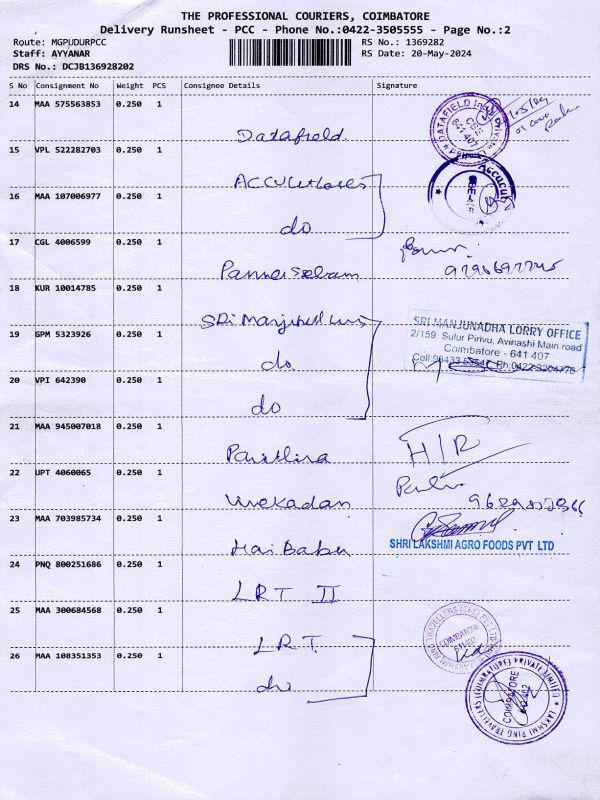 THE PROFESSIONAL COURIERS, COIMBATORE
Delivery Runsheet - PCC - Phone No.:0422-3505555 - Page No.:2
Route: MGPUDURPCC
Staff: AYYANAR
DRS No.: DCJB136928202
RS No.: 1369282
RS Date: 20-May-2024
S No Consignment No Weight PCS Consignee Details Signature
14 MAA 575563853 0.250 1
Datafield.
15 VPL 522282703 0.250 1
16 MAA 107006977 0.250 1
do
17 CGL 4006599 0.250 1
Pannerselvam
18 KUR 10014785 0.250 1
19 GPM 5323926 0.250 1
do
20 VPI 642390 0.250 1
do
21 MAA 945007018 0.250 1
H/R
22 UPT 4060065 0.250 1
Vivekadan
23 MAA 703985734 0.250 1
Hai Babu
24 PNQ 800251686 0.250 1
LRT II
25 MAA 300684568 0.250 1
LRT
26 MAA 108351353 0.250 1
do
DATAFIELD
641 407
Accucut
SRI MANJUNADHA LORRY OFFICE
2/159, Sulur Pirivu, Avinashi Main road
Coimbatore - 641 407
SHRI LAKSHMI AGRO FOODS PVT LTD
COIMBATORE
LAKSHMI RING TRAVELLERS (COIMBATORE) PRIVATE LIMITED
COIMBATORE